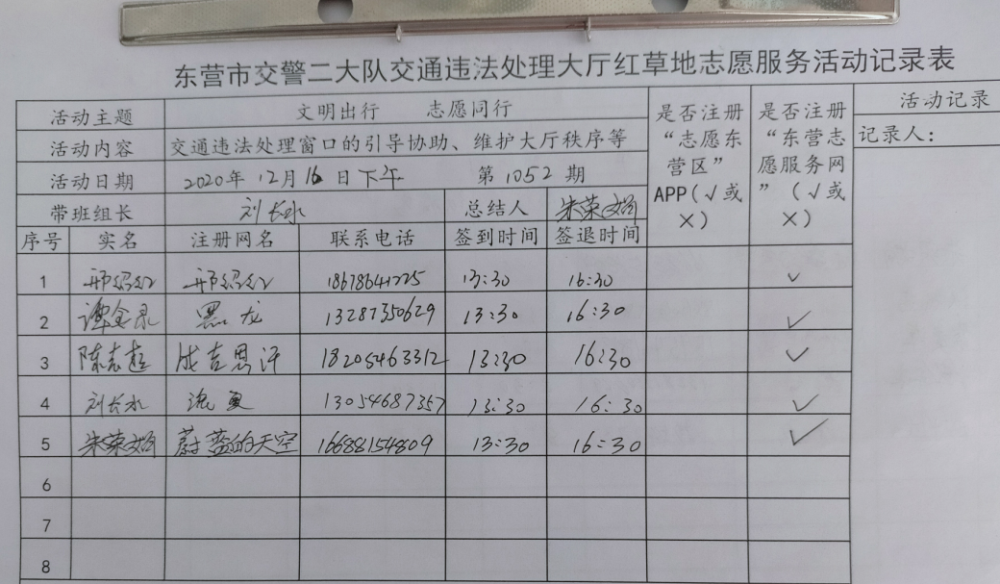 东营市交警二大队交通违法处理大厅红草地志愿服务活动记录表
活动主题 文明出行 志愿同行 是否注册“志愿东营区”APP(√或×) 是否注册“东营志愿服务网”(√或×) 活动记录
活动内容 交通违法处理窗口的引导协助、维护大厅秩序等 记录人:
活动日期 2020年12月16日下午 第1052期
带班组长 刘长水 总结人 朱荣娟
序号 实名 注册网名 联系电话 签到时间 签退时间
1 18678641225 13:30 16:30 ✓
2 黑龙 13287350629 13:30 16:30 ✓
3 陈志超 成吉思汗 18205463312 13:30 16:30 ✓
4 刘长水 13054687357 13:30 16:30 ✓
5 朱荣娟 蔚蓝的天空 16688154809 13:30 16:30 ✓
6
7
8